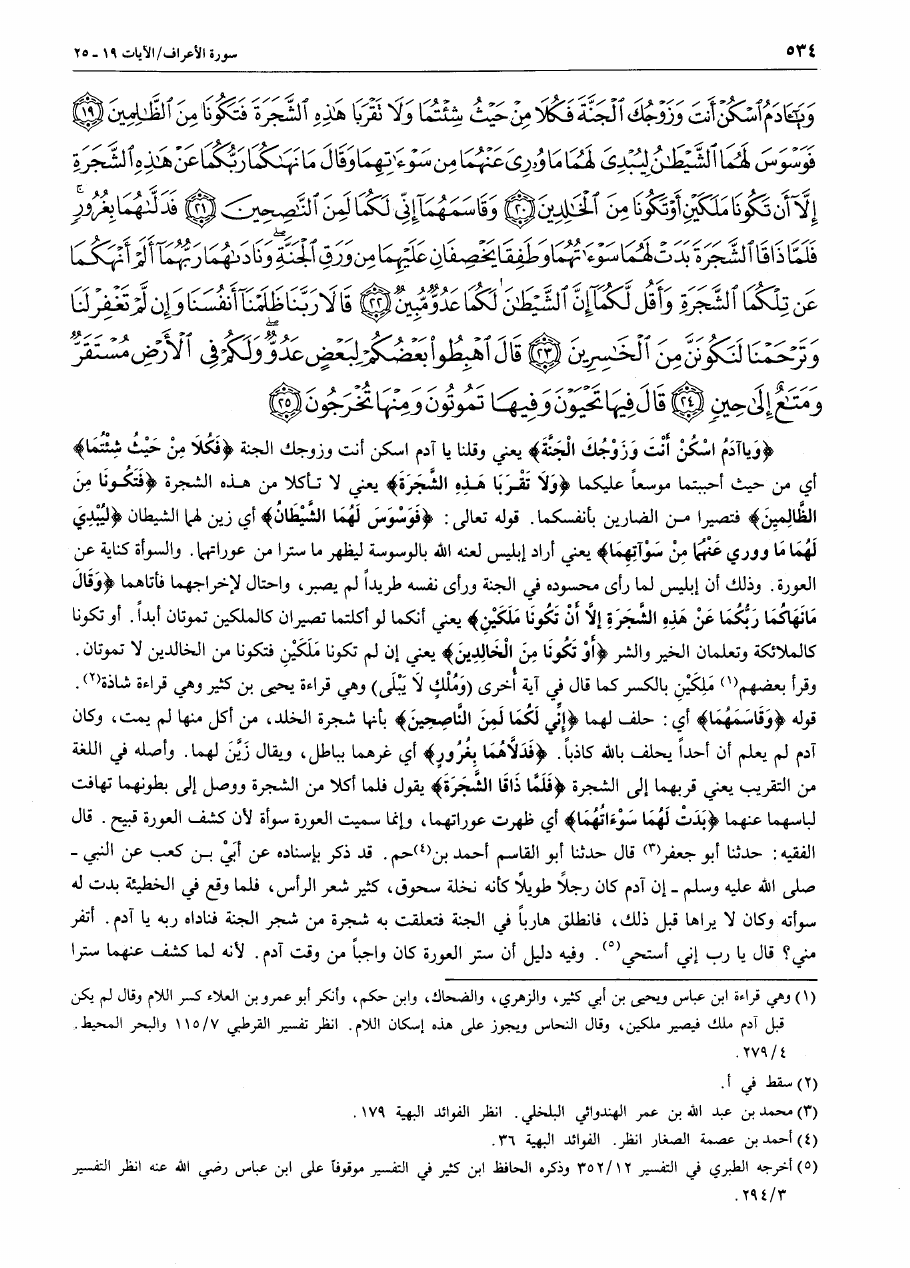 ٥٣٤
سورة الأعراف/الآيات ١٩ ـ ٢٥
وَيَٰٓـَٔادَمُ ٱسْكُنْ أَنتَ وَزَوْجُكَ ٱلْجَنَّةَ فَكُلَا مِنْ حَيْثُ شِئْتُمَا وَلَا نَقْرَبَا هَٰذِهِ ٱلشَّجَرَةَ فَتَكُونَا مِنَ ٱلظَّٰلِمِينَ ﴿١٩﴾
فَوَسْوَسَ لَهُمَا ٱلشَّيْطَٰنُ لِيُبْدِىَ لَهُمَا مَا وُۥرِىَ عَنْهُمَا مِن سَوْءَٰتِهِمَا وَقَالَ مَا نَهَىٰكُمَا رَبُّكُمَا عَنْ هَٰذِهِ ٱلشَّجَرَةِ
إِلَّآ أَن تَكُونَا مَلَكَيْنِ أَوْ تَكُونَا مِنَ ٱلْخَٰلِدِينَ ﴿٢٠﴾ وَقَاسَمَهُمَآ إِنِّى لَكُمَا لَمِنَ ٱلنَّٰصِحِينَ ﴿٢١﴾ فَدَلَّىٰهُمَا بِغُرُورٍ ۚ
فَلَمَّا ذَاقَا ٱلشَّجَرَةَ بَدَتْ لَهُمَا سَوْءَٰتُهُمَا وَطَفِقَا يَخْصِفَانِ عَلَيْهِمَا مِن وَرَقِ ٱلْجَنَّةِ ۖ وَنَادَىٰهُمَا رَبُّهُمَآ أَلَمْ أَنْهَكُمَا
عَن تِلْكُمَا ٱلشَّجَرَةِ وَأَقُل لَّكُمَآ إِنَّ ٱلشَّيْطَٰنَ لَكُمَا عَدُوٌّ مُّبِينٌ ﴿٢٢﴾ قَالَا رَبَّنَا ظَلَمْنَآ أَنفُسَنَا وَإِن لَّمْ تَغْفِرْ لَنَا
وَتَرْحَمْنَا لَنَكُونَنَّ مِنَ ٱلْخَٰسِرِينَ ﴿٢٣﴾ قَالَ ٱهْبِطُوا۟ بَعْضُكُمْ لِبَعْضٍ عَدُوٌّ ۖ وَلَكُمْ فِى ٱلْأَرْضِ مُسْتَقَرٌّ
وَمَتَٰعٌ إِلَىٰ حِينٍ ﴿٢٤﴾ قَالَ فِيهَا تَحْيَوْنَ وَفِيهَا تَمُوتُونَ وَمِنْهَا تُخْرَجُونَ ﴿٢٥﴾
﴿وَيا آدَمُ اسْكُنْ أَنْتَ وَزَوْجُكَ الْجَنَّةَ﴾ يعني وقلنا يا آدم اسكن أنت وزوجك الجنة ﴿فَكُلَا مِنْ حَيْثُ شِئْتُمَا﴾
أي من حيث أحببتما موسعاً عليكما ﴿وَلَا تَقْرَبَا هَذِهِ الشَّجَرَةَ﴾ يعني لا تأكلا من هذه الشجرة ﴿فَتَكُونَا مِنَ
الظَّالِمِينَ﴾ فتصيرا من الضارين بأنفسكما. قوله تعالى: ﴿فَوَسْوَسَ لَهُمَا الشَّيْطَانُ﴾ أي زين لهما الشيطان ﴿لِيُبْدِيَ
لَهُمَا مَا ووري عَنْهُمَا مِنْ سَوْآتِهِمَا﴾ يعني أراد إبليس لعنه الله بالوسوسة ليظهر ما سترا من عوراتهما. والسوأة كناية عن
العورة. وذلك أن إبليس لما رأى محسوده في الجنة ورأى نفسه طريداً لم يصبر، واحتال لإخراجهما فأتاهما ﴿وَقَالَ
مَا نَهَاكُمَا رَبُّكُمَا عَنْ هَذِهِ الشَّجَرَةِ إِلَّا أَنْ تَكُونَا مَلَكَيْنِ﴾ يعني أنكما لو أكلتما تصيران كالملكين تموتان أبداً. أو تكونا
كالملائكة وتعلمان الخير والشر ﴿أَوْ تَكُونَا مِنَ الْخَالِدِينَ﴾ يعني إن لم تكونا مَلَكَيْنِ فتكونا من الخالدين لا تموتان.
وقرأ بعضهم(١) مَلِكَيْنِ بالكسر كما قال في آية أخرى (وَمُلْكٍ لَا يَبْلَى) وهي قراءة يحيى بن كثير وهي قراءة شاذة(٢).
قوله ﴿وَقَاسَمَهُمَا﴾ أي: حلف لهما ﴿إِنِّي لَكُمَا لَمِنَ النَّاصِحِينَ﴾ بأنها شجرة الخلد، من أكل منها لم يمت، وكان
آدم لم يعلم أن أحداً يحلف بالله كاذباً. ﴿فَدَلَّاهُمَا بِغُرُورٍ﴾ أي غرهما بباطل، ويقال زَيَّنَ لهما. وأصله في اللغة
من التقريب يعني قربهما إلى الشجرة ﴿فَلَمَّا ذَاقَا الشَّجَرَةَ﴾ يقول فلما أكلا من الشجرة ووصل إلى بطونهما تهافت
لباسهما عنهما ﴿بَدَتْ لَهُمَا سَوْءَاتُهُمَا﴾ أي ظهرت عوراتهما، وإنما سميت العورة سوأة لأن كشف العورة قبيح. قال
الفقيه: حدثنا أبو جعفر(٣) قال حدثنا أبو القاسم أحمد بن(٤)حم. قد ذكر بإسناده عن أُبَيْ بن كعب عن النبي -
صلى الله عليه وسلم - إن آدم كان رجلاً طويلاً كأنه نخلة سحوق، كثير شعر الرأس، فلما وقع في الخطيئة بدت له
سوأته وكان لا يراها قبل ذلك، فانطلق هارباً في الجنة فتعلقت به شجرة من شجر الجنة فناداه ربه يا آدم. أتفر
مني؟ قال يا رب إني أستحي(٥). وفيه دليل أن ستر العورة كان واجباً من وقت آدم. لأنه لما كشف عنهما سترا
(١) وهي قراءة ابن عباس ويحيى بن أبي كثير، والزهري، والضحاك، وابن حكم، وأنكر أبو عمرو بن العلاء كسر اللام وقال لم يكن
قبل آدم ملك فيصير ملكين، وقال النحاس ويجوز على هذه إسكان اللام. انظر تفسير القرطبي ١١٥/٧ والبحر المحيط.
٢٧٩/٤.
(٢) سقط في أ.
(٣) محمد بن عبد الله بن عمر الهندوائي البلخلي. انظر الفوائد البهية ١٧٩.
(٤) أحمد بن عصمة الصغار انظر. الفوائد البهية ٣٦.
(٥) أخرجه الطبري في التفسير ٣٥٢/١٢ وذكره الحافظ ابن كثير في التفسير موقوفاً على ابن عباس رضي الله عنه انظر التفسير
٢٩٤/٣.